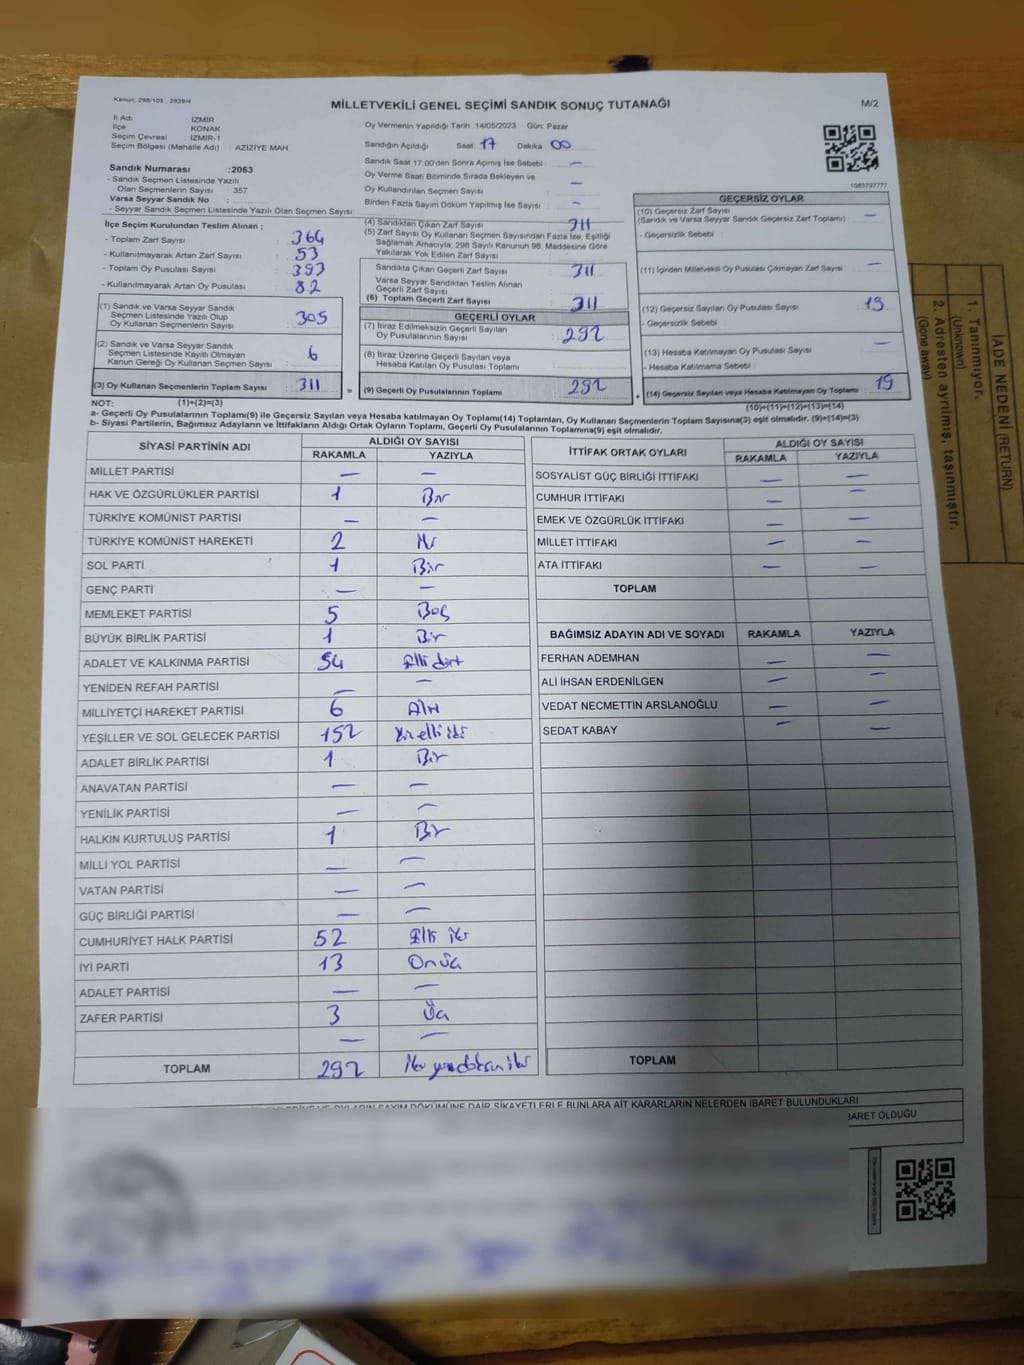 Kanun: 298/105 , 2839/4
MİLLETVEKİLİ GENEL SEÇİMİ SANDIK SONUÇ TUTANAĞI
M/2
İl Adı İZMİR
İlçe KONAK
Seçim Çevresi İZMİR-1
Seçim Bölgesi (Mahalle Adı) AZİZİYE MAH
Sandık Numarası :2063
- Sandık Seçmen Listesinde Yazılı
Olan Seçmenlerin Sayısı : 357
Varsa Seyyar Sandık No :
- Seyyar Sandık Seçmen Listesinde Yazılı Olan Seçmen Sayısı
Oy Vermenin Yapıldığı Tarih :14/05/2023 Gün: Pazar
Sandığın Açıldığı Saat: 17 Dakika 00
Sandık Saat 17.00'den Sonra Açımış İse Sebebi : —
Oy Verme Saati Bitiminde Sırada Bekleyen ve
Oy Kullandırılan Seçmen Sayısı —
Birden Fazla Sayım Döküm Yapılmış İse Sayısı —
1083797777
İlçe Seçim Kurulundan Teslim Alınan ;
- Toplam Zarf Sayısı 364
- Kullanılmayarak Artan Zarf Sayısı 53
- Toplam Oy Pusulası Sayısı 393
- Kullanılmayarak Artan Oy Pusulası 82
(1) Sandık ve Varsa Seyyar Sandık
Seçmen Listesinde Yazılı Olup
Oy Kullanan Seçmenlerin Sayısı 305
(2) Sandık ve Varsa Seyyar Sandık
Seçmen Listesinde Kayıtlı Olmayan
Kanun Gereği Oy Kullanan Seçmen Sayısı 6
(3) Oy Kullanan Seçmenlerin Toplam Sayısı 311
(1)+(2)=(3)
(4) Sandıktan Çıkan Zarf Sayısı 311
(5) Zarf Sayısı Oy Kullanan Seçmen Sayısından Fazla İse, Eşitliği
Sağlamak Amacıyla; 298 Sayılı Kanunun 98. Maddesine Göre
Yakılarak Yok Edilen Zarf Sayısı
Sandıkta Çıkan Geçerli Zarf Sayısı 311
Varsa Seyyar Sandıktan Teslim Alınan
Geçerli Zarf Sayısı
(6) Toplam Geçerli Zarf Sayısı 311
GEÇERLİ OYLAR
(7) İtiraz Edilmeksizin Geçerli Sayılan
Oy Pusulalarının Sayısı 292
(8) İtiraz Üzerine Geçerli Sayılan veya
Hesaba Katılan Oy Pusulası Toplamı
= (9) Geçerli Oy Pusulalarının Toplamı 292
GEÇERSİZ OYLAR
(10) Geçersiz Zarf Sayısı
(Sandık ve Varsa Seyyar Sandık Geçersiz Zarf Toplamı) —
- Geçersizlik Sebebi :
(11) İçinden Milletvekili Oy Pusulası Çıkmayan Zarf Sayısı —
(12) Geçersiz Sayılan Oy Pusulası Sayısı 19
- Geçersizlik Sebebi :
(13) Hesaba Katılmayan Oy Pusulası Sayısı —
- Hesaba Katılmama Sebebi :
+ (14) Geçersiz Sayılan veya Hesaba Katılmayan Oy Toplamı 19
(10)+(11)+(12)+(13)=(14)
NOT:
a- Geçerli Oy Pusulalarının Toplamı(9) ile Geçersiz Sayılan veya Hesaba katılmayan Oy Toplamı(14) Toplamları, Oy Kullanan Seçmenlerin Toplam Sayısına(3) eşit olmalıdır. (9)+(14)=(3)
b- Siyasi Partilerin, Bağımsız Adayların ve İttifakların Aldığı Ortak Oyların Toplamı, Geçerli Oy Pusulalarının Toplamına(9) eşit olmalıdır.
SİYASİ PARTİNİN ADI ALDIĞI OY SAYISI
RAKAMLA YAZIYLA
MİLLET PARTİSİ — —
HAK VE ÖZGÜRLÜKLER PARTİSİ 1 Bir
TÜRKİYE KOMÜNİST PARTİSİ — —
TÜRKİYE KOMÜNİST HAREKETİ 2
SOL PARTİ 1 Bir
GENÇ PARTİ — —
MEMLEKET PARTİSİ 5 Beş
BÜYÜK BİRLİK PARTİSİ 1 Bir
ADALET VE KALKINMA PARTİSİ 54 Elli dört
YENİDEN REFAH PARTİSİ — —
MİLLİYETÇİ HAREKET PARTİSİ 6 Altı
YEŞİLLER VE SOL GELECEK PARTİSİ 152 Yüz elli iki
ADALET BİRLİK PARTİSİ 1 Bir
ANAVATAN PARTİSİ — —
YENİLİK PARTİSİ — —
HALKIN KURTULUŞ PARTİSİ 1 Bir
MİLLİ YOL PARTİSİ — —
VATAN PARTİSİ — —
GÜÇ BİRLİĞİ PARTİSİ — —
CUMHURİYET HALK PARTİSİ 52 Elli iki
İYİ PARTİ 13 On üç
ADALET PARTİSİ — —
ZAFER PARTİSİ 3 Üç
— —
TOPLAM 292 İki yüz doksan iki
İTTİFAK ORTAK OYLARI ALDIĞI OY SAYISI
RAKAMLA YAZIYLA
SOSYALİST GÜÇ BİRLİĞİ İTTİFAKI — —
CUMHUR İTTİFAKI — —
EMEK VE ÖZGÜRLÜK İTTİFAKI — —
MİLLET İTTİFAKI — —
ATA İTTİFAKI — —
TOPLAM
BAĞIMSIZ ADAYIN ADI VE SOYADI RAKAMLA YAZIYLA
FERHAN ADEMHAN — —
ALİ İHSAN ERDENİLGEN — —
VEDAT NECMETTİN ARSLANOĞLU — —
SEDAT KABAY — —
TOPLAM
OYLARIN SAYIM DÖKÜMÜNE DAİR ŞİKAYETLERLE BUNLARA AİT KARARLARIN NELERDEN İBARET BULUNDUKLARI
İBARET OLDUĞU
İADE NEDENİ (RETURN)
1. Tanınmıyor.
(Unknown)
2. Adresten ayrılmış, taşınmıştır.
(Gone away)